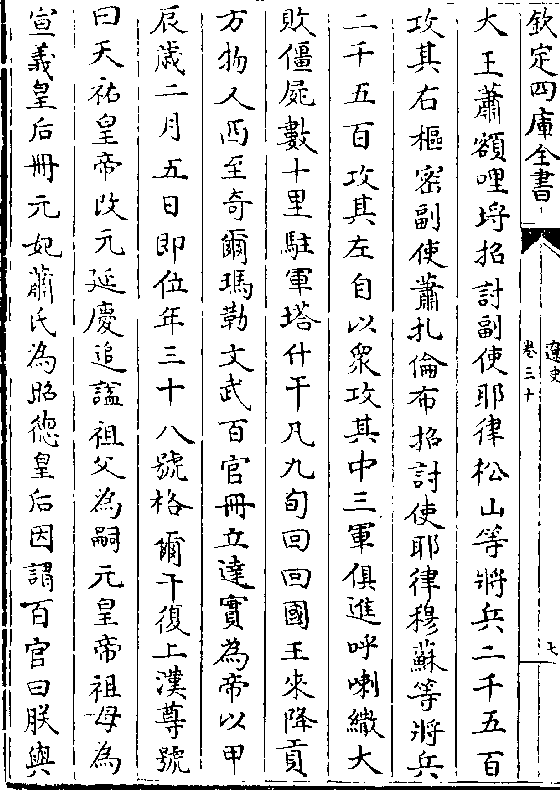 欽定四庫全書
遼史
卷三十
七
大王蕭額哩埒招討副使耶律松山等將兵二千五百
攻其右樞密副使蕭扎倫布招討使耶律穆蘇等將兵
二千五百攻其左自以衆攻其中三軍俱進呼喇繖大
敗僵屍數十里駐軍塔什干凡九旬回回國王來降貢
方物又西至奇爾瑪勒文武百官冊立達實為帝以甲
辰歲二月五日即位年三十八號格爾干復上漢尊號
曰天祐皇帝改元延慶追諡祖父為嗣元皇帝祖母為
宣義皇后冊元妃蕭氏為昭德皇后因謂百官曰朕與